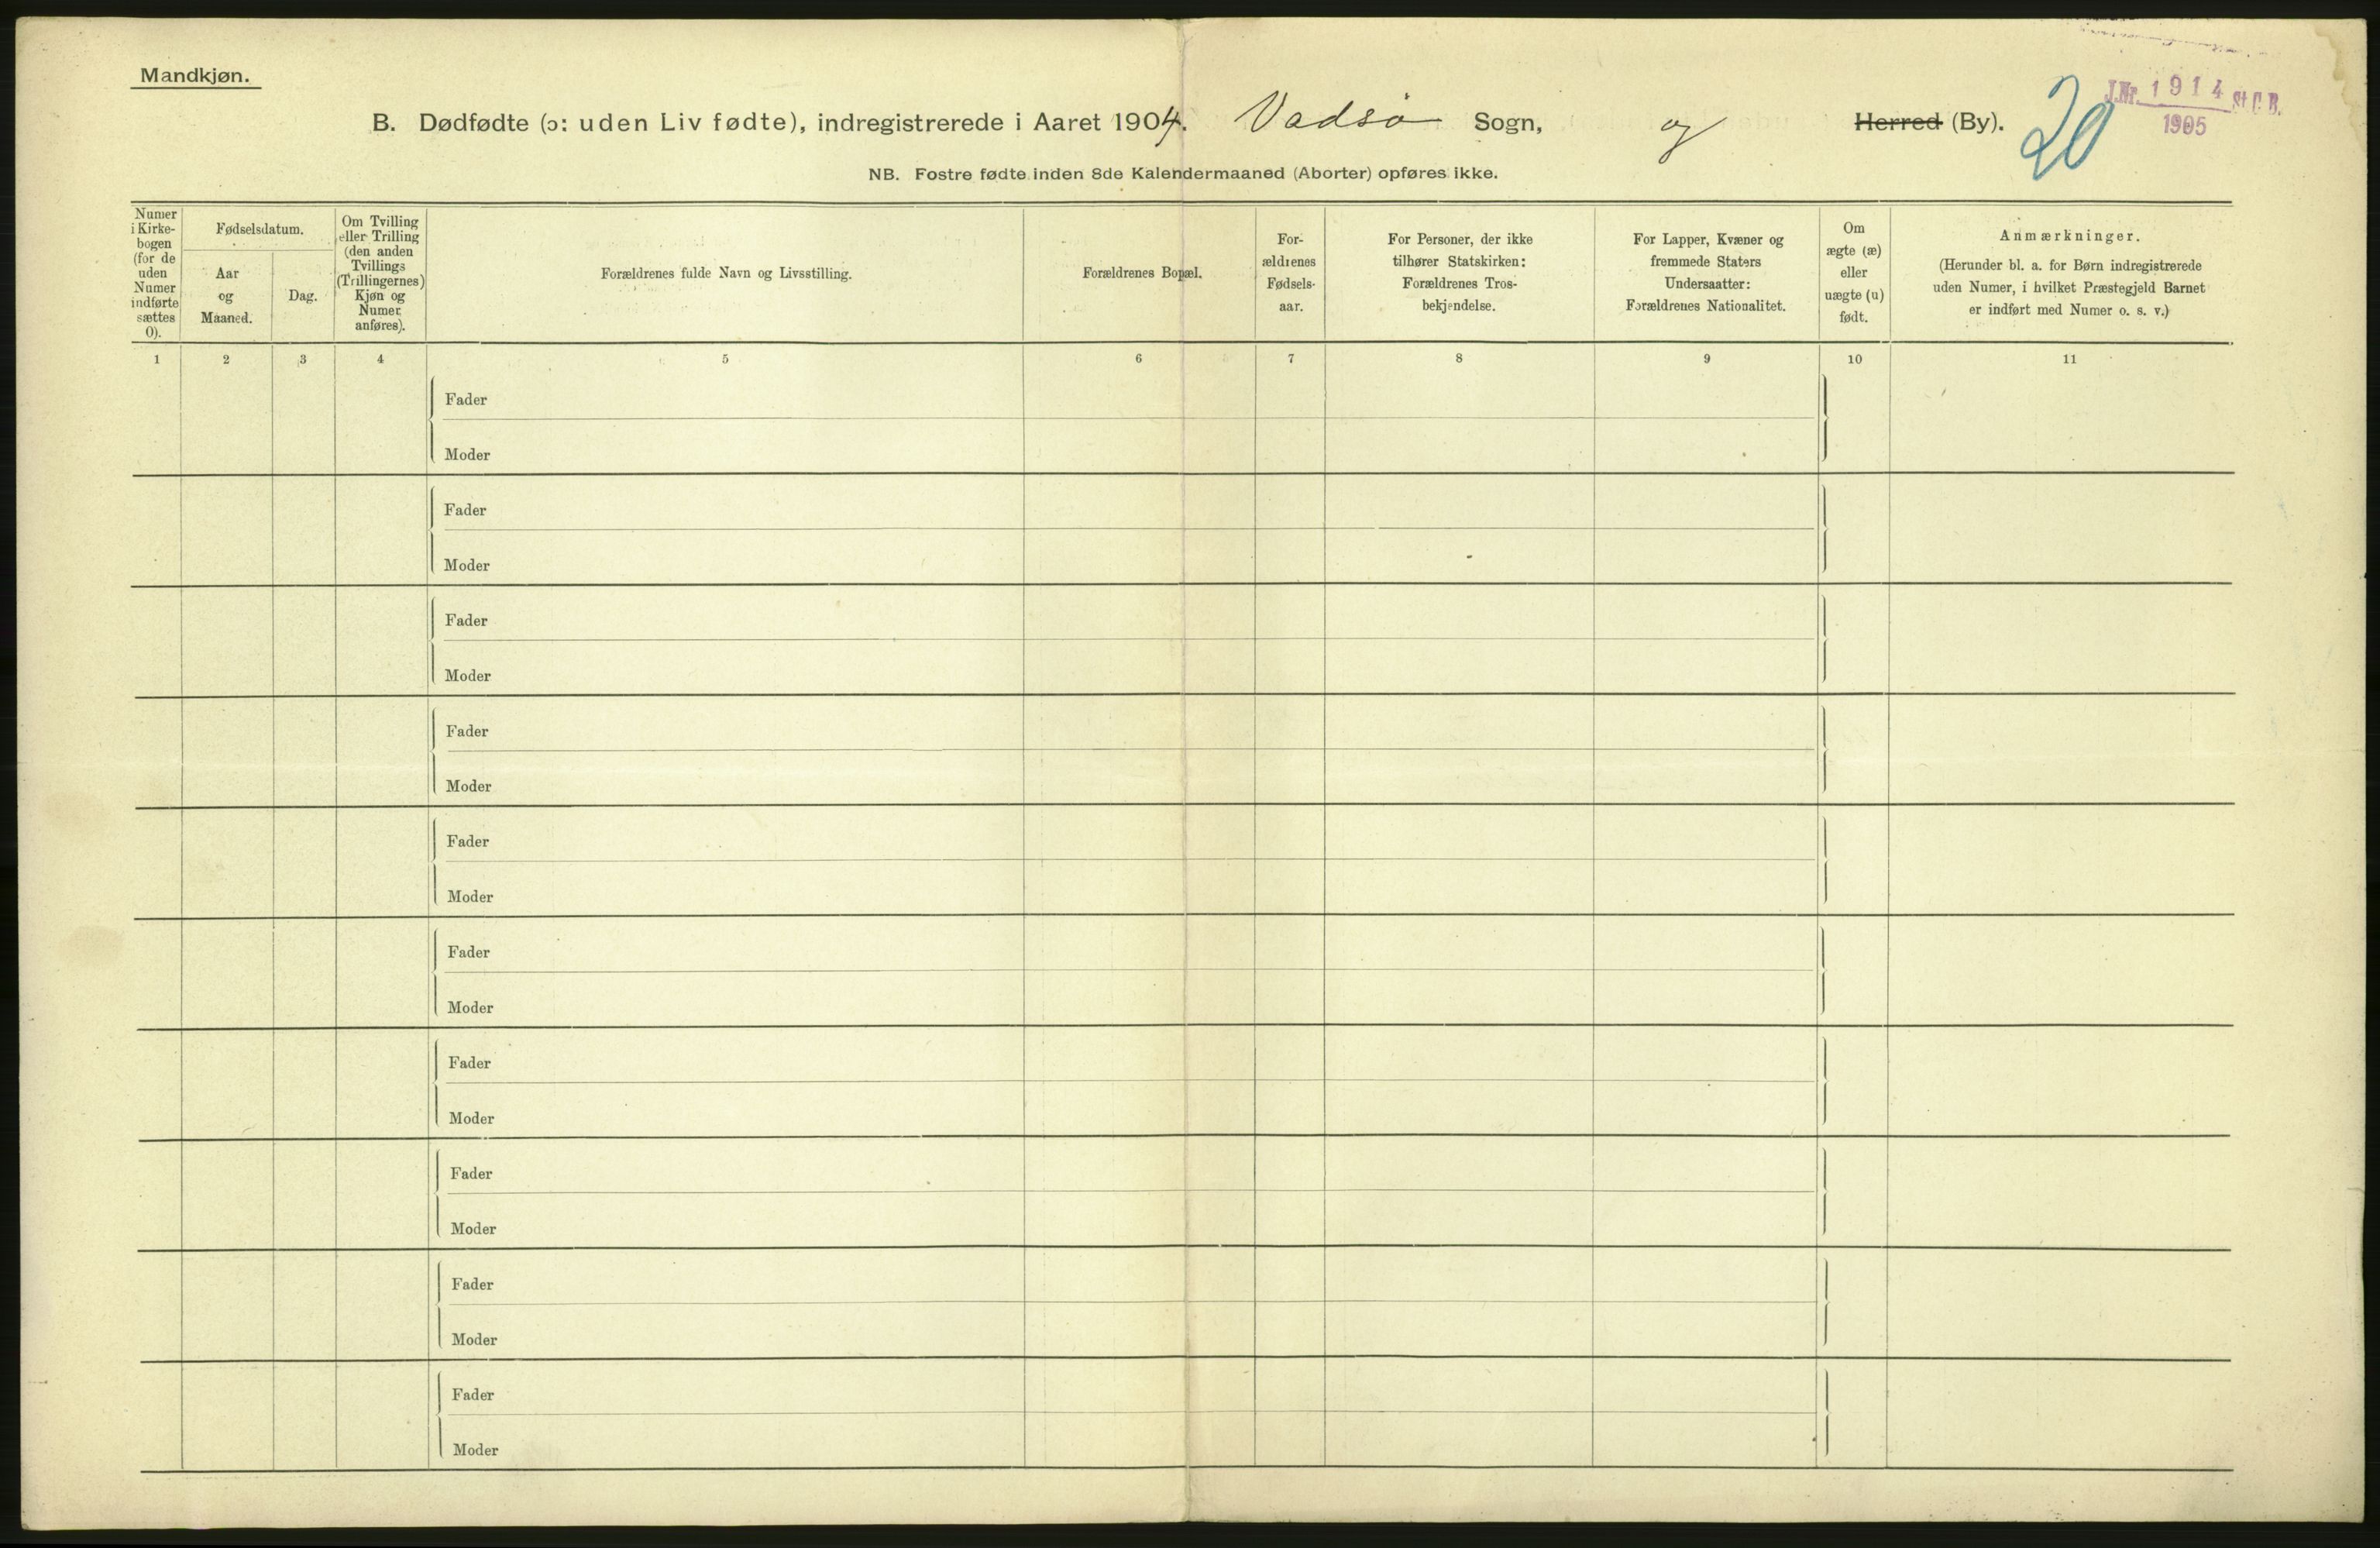 Mandkjøn.
B. Dødfødte (ɔ: uden Liv fødte), indregistrerede i Aaret 1904. Vadsø Sogn, og Herred (By).
20
J.Nr. 1914 St. C. B.
1905
NB. Fostre fødte inden 8de Kalendermaaned (Aborter) opføres ikke.
Numer
i Kirke-
bogen
(for de
uden
Numer
indførte
sættes
0).
Fødselsdatum.
Aar
og
Maaned.
Dag.
Om Tvilling
eller Trilling
(den anden
Tvillings
(Trillingernes)
Kjøn og
Numer
anføres).
Forældrenes fulde Navn og Livsstilling.
Forældrenes Bopæl.
For-
ældrenes
Fødsels-
aar.
For Personer, der ikke
tilhører Statskirken:
Forældrenes Tros-
bekjendelse.
For Lapper, Kvæner og
fremmede Staters
Undersaatter:
Forældrenes Nationalitet.
Om
ægte (æ)
eller
uægte (u)
født.
Anmærkninger.
(Herunder bl. a. for Børn indregistrerede
uden Numer, i hvilket Præstegjeld Barnet
er indført med Numer o. s. v.)
1 2 3 4 5 6 7 8 9 10 11
Fader
Moder
Fader
Moder
Fader
Moder
Fader
Moder
Fader
Moder
Fader
Moder
Fader
Moder
Fader
Moder
Fader
Moder
Fader
Moder